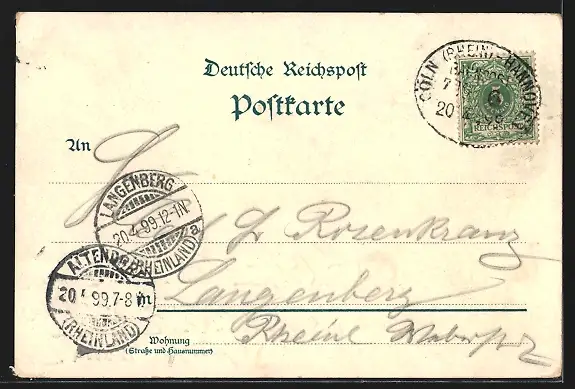 Deutsche Reichspost
Postkarte
CÖLN (RHEIN) HANNOVER
20 4
REICHSPOST
An
LANGENBERG
20.4.99.12-1N.
(RHEINLAND) a
Rosenkranz
ALTENDORF
20.4.99.7-8
(RHEINLAND)
Langenberg
Rheinl
Wohnung
(Straße und Hausnummer)